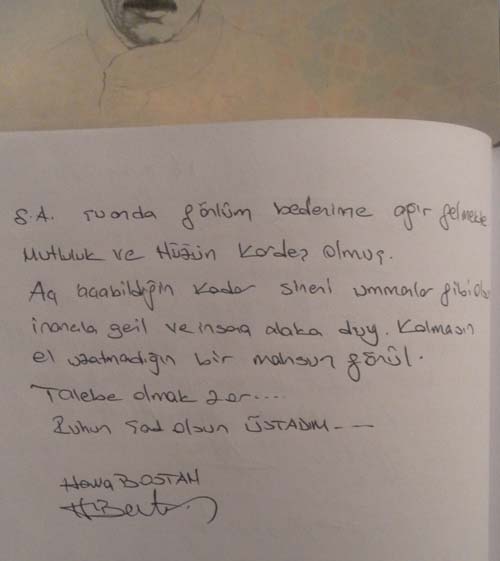 S.A. Şuanda gönlüm bedenime ağır gelmekte
Mutluluk ve Hüzün Kardeş Olmuş.
Aç açabildiğin kadar sineni ummanlar gibi olsun
inançla geril ve insana alaka duy. Kalmasın
el uzatmadığın bir mahsun gönül.
Talebe olmak zor....
Ruhun Şad Olsun ÜSTADIM---
Havva BOSTAN